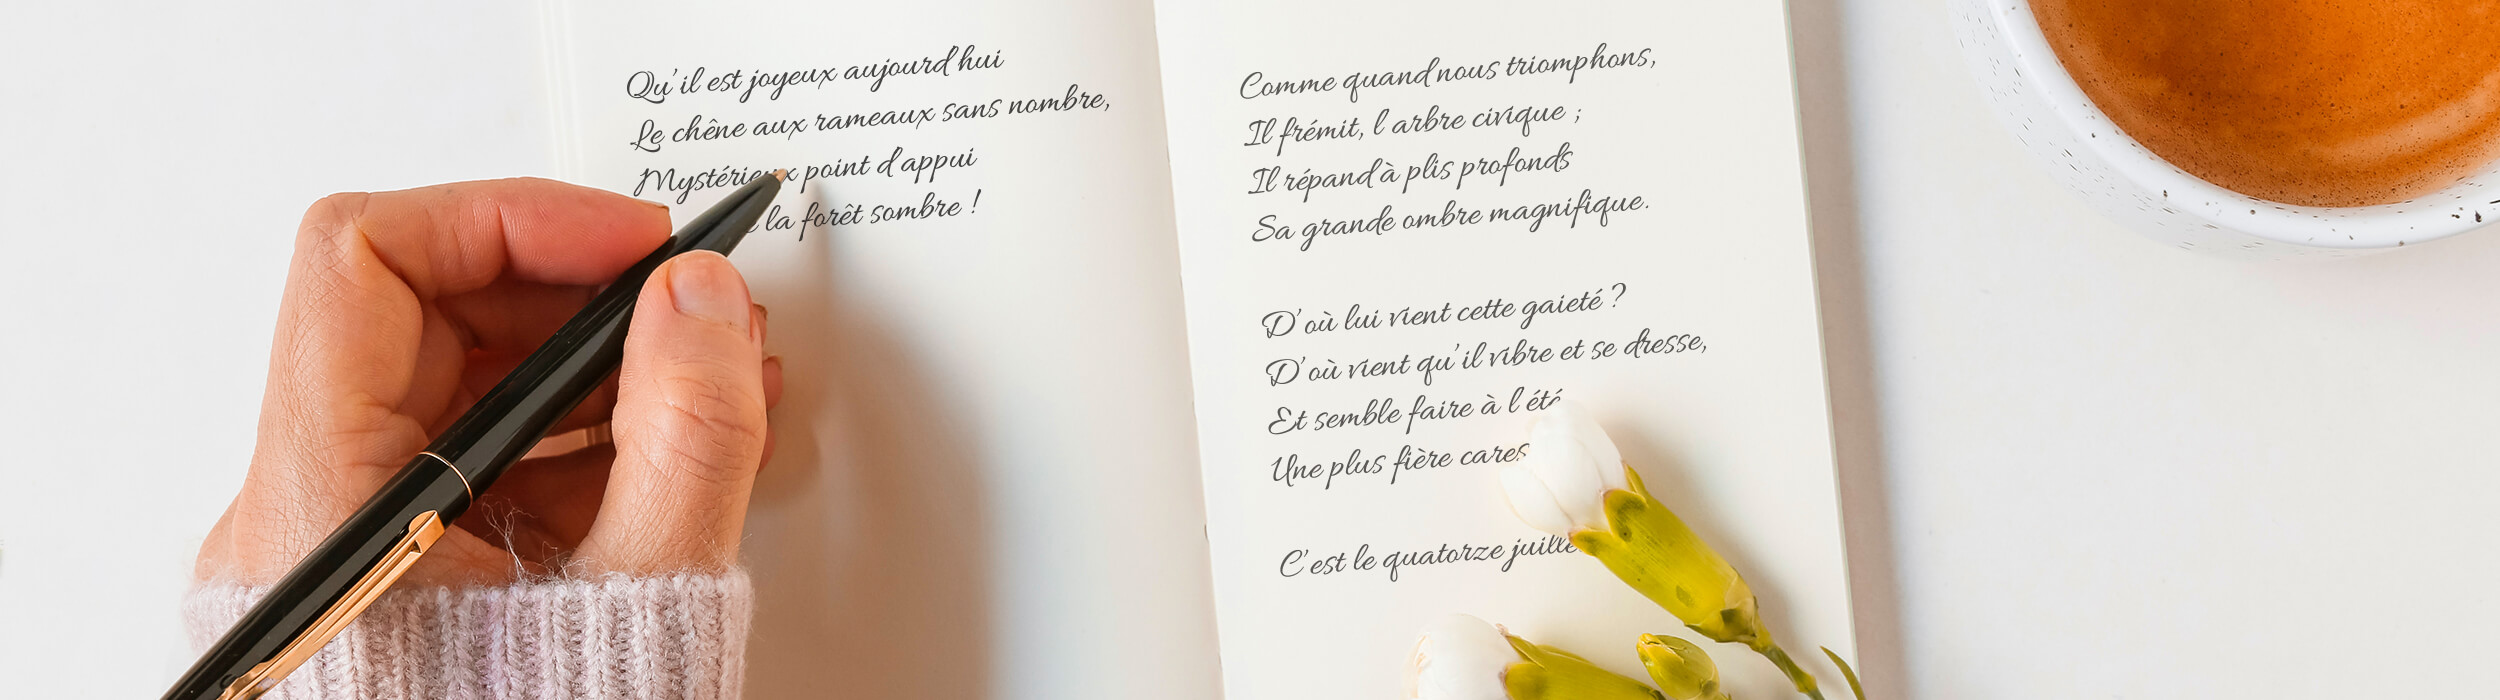 Qu'il est joyeux aujourd'hui
Le chêne aux rameaux sans nombre,
Mystérieux point d'appui
la forêt sombre !
Comme quand nous triomphons,
Il frémit, l'arbre civique ;
Il répand à plis profonds
Sa grande ombre magnifique.
D'où lui vient cette gaieté ?
D'où vient qu'il vibre et se dresse,
Et semble faire à l'été
Une plus fière
C'est le quatorze